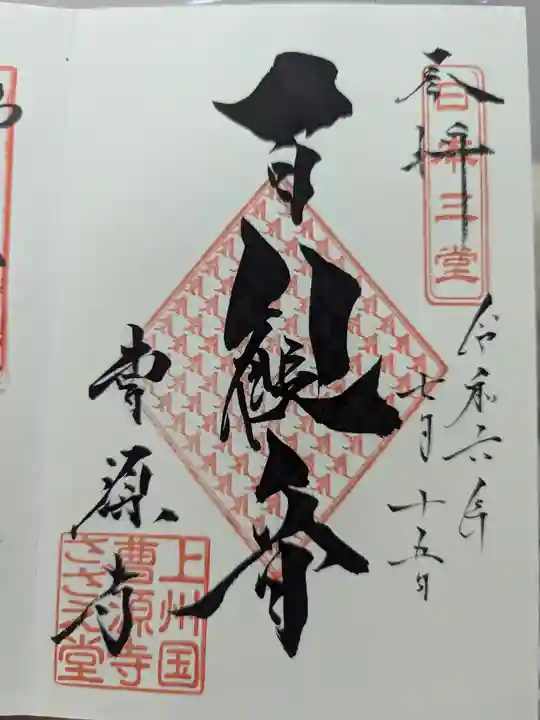 奉拝
日本三堂
令和六年
七月十五日
百観音
曹源寺
上州国
曹源寺
さざえ堂